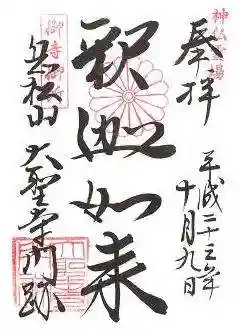 奉拝
平成二十三年
十月九日
釈迦如来
御寺御所
岳松山
大聖寺門跡